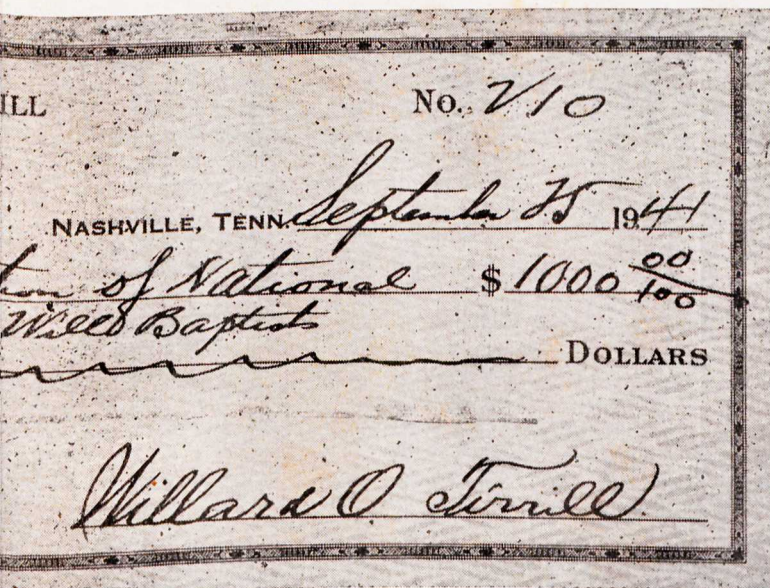 ILL No. 210
NASHVILLE, TENN. September 25 1941
tion of National $ 1000 00/100
Will Baptists
DOLLARS
Willard O Tirrill